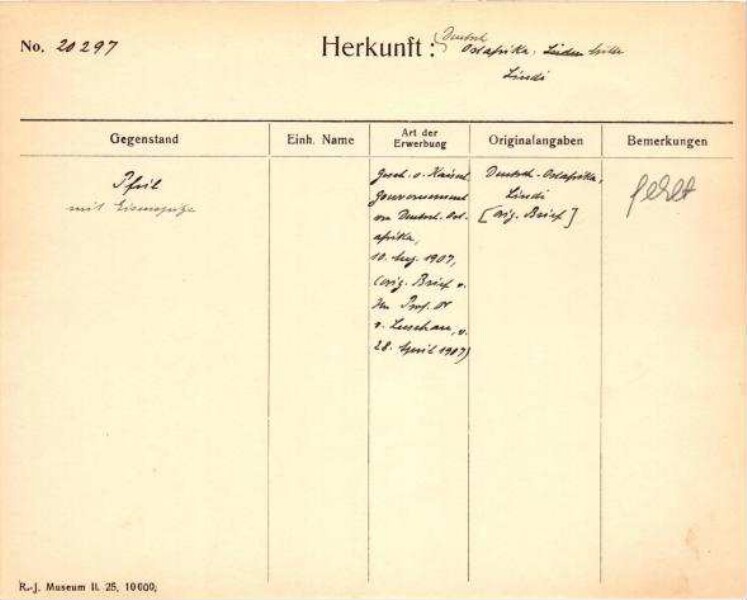 No. 20297
Herkunft: Deutsch
Ostafrika.
Lindi
Gegenstand
Einh. Name
Art der
Erwerbung
Originalangaben
Bemerkungen
Pfeil
mit Eisenspitze
Gesch. v. Kaiserl.
Gouvernement
von Deutsch. Ost-
afrika,
10. Aug. 1907,
(orig. Brief v.
Hn Prof. Dr
v. Luschan, v.
28. April 1907)
Deutsch-Ostafrika,
Lindi
[orig. Brief]
fehlt
R.-J. Museum II. 25, 10000;